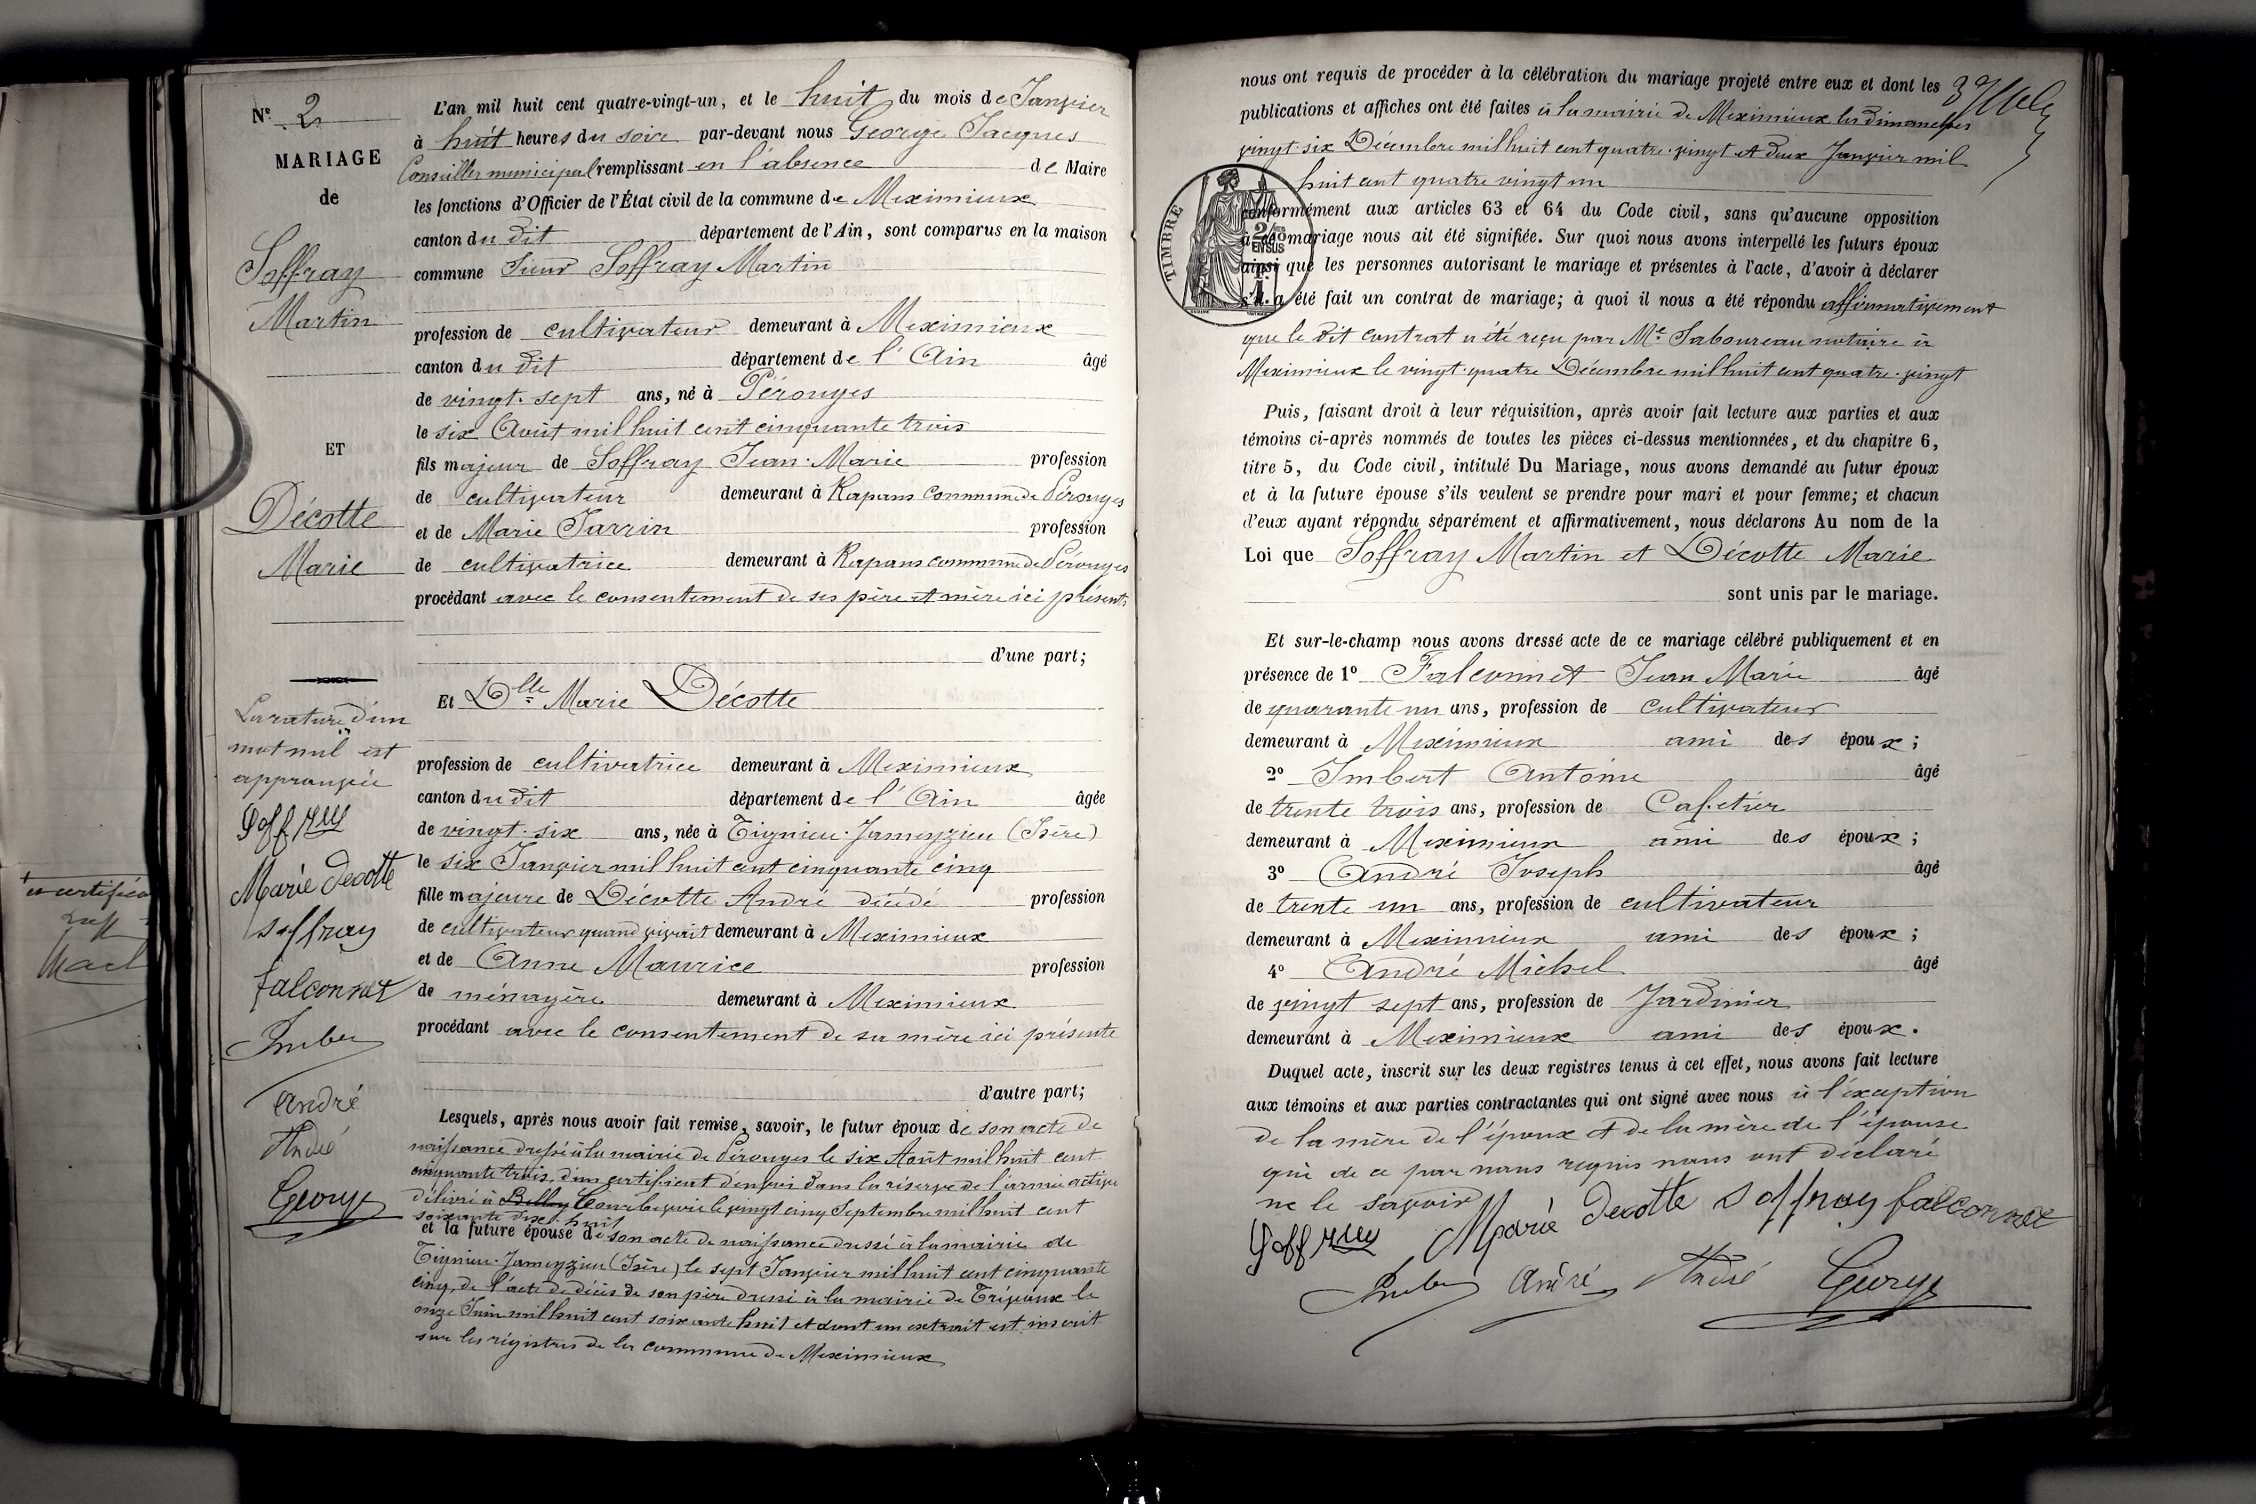 N° 2
MARIAGE
de
Soffray
Martin
ET
Décotte
Marie
La rature d'un
mot nul est
approuvée
Soffray
Marie Decotte
Soffray
falconnet
Imber
André
André
George
L'an mil huit cent quatre-vingt-un, et le huit du mois de Janvier
à huit heures du soir par-devant nous George Jacques
Conseiller municipal remplissant en l'absence de Maire
les fonctions d'Officier de l'État civil de la commune de Meximieux
canton du dit département de l'Ain, sont comparus en la maison
commune Sieur Soffray Martin
profession de cultivateur demeurant à Meximieux
canton du dit département de l'Ain âgé
de vingt-sept ans, né à Pérouges
le six Août mil huit cent cinquante trois
fils majeur de Soffray Jean-Marie profession
de cultivateur demeurant à Rapans commune de Pérouges
et de Marie Jarrin profession
de cultivatrice demeurant à Rapans commune de Pérouges
procédant avec le consentement de ses père et mère ici présents
d'une part;
Et Dlle Marie Décotte
profession de cultivatrice demeurant à Meximieux
canton du dit département de l'Ain âgée
de vingt-six ans, née à Tignieu-Jameyzieu (Isère)
le six Janvier mil huit cent cinquante cinq
fille majeure de Décotte André décédé profession
de cultivateur quand vivait demeurant à Meximieux
et de Anne Maurice profession
de ménagère demeurant à Meximieux
procédant avec le consentement de sa mère ici présente
d'autre part;
Lesquels, après nous avoir fait remise, savoir, le futur époux de son acte de
naissance dressé à la mairie de Pérouges le six Août mil huit cent
cinquante trois, d'un certificat d'envoi dans la réserve de l'armée active
délivré à Belley Courbevoie le vingt cinq Septembre mil huit cent
soixante dix-huit
et la future épouse de son acte de naissance dressé à la mairie de
Tignieu-Jameyzieu (Isère) le sept Janvier mil huit cent cinquante
cinq, de l'acte de décès de son père dressé à la mairie de Trévoux le
onze Juin mil huit cent soixante huit et dont un extrait est inscrit
sur les régistres de la commune de Meximieux
nous ont requis de procéder à la célébration du mariage projeté entre eux et dont les
publications et affiches ont été faites à la mairie de Meximieux les dimanches
vingt-six Décembre mil huit cent quatre-vingt et deux Janvier mil
huit cent quatre vingt un
TIMBRE
2/10 EN SUS
conformément aux articles 63 et 64 du Code civil, sans qu'aucune opposition
à ce mariage nous ait été signifiée. Sur quoi nous avons interpellé les futurs époux
ainsi que les personnes autorisant le mariage et présentes à l'acte, d'avoir à déclarer
s'il a été fait un contrat de mariage; à quoi il nous a été répondu affirmativement
que le dit contrat a été reçu par Me Saboureau notaire à
Meximieux le vingt-quatre Décembre mil huit cent quatre-vingt
Puis, faisant droit à leur réquisition, après avoir fait lecture aux parties et aux
témoins ci-après nommés de toutes les pièces ci-dessus mentionnées, et du chapitre 6,
titre 5, du Code civil, intitulé Du Mariage, nous avons demandé au futur époux
et à la future épouse s'ils veulent se prendre pour mari et pour femme; et chacun
d'eux ayant répondu séparément et affirmativement, nous déclarons Au nom de la
Loi que Soffray Martin et Décotte Marie
sont unis par le mariage.
Et sur-le-champ nous avons dressé acte de ce mariage célébré publiquement et en
présence de 1° Falconnet Jean Marie âgé
de quarante un ans, profession de cultivateur
demeurant à Meximieux ami des époux;
2° Imbert Antoine âgé
de trente trois ans, profession de Cafetier
demeurant à Meximieux ami des époux;
3° André Joseph âgé
de trente un ans, profession de cultivateur
demeurant à Meximieux ami des époux;
4° André Michel âgé
de vingt sept ans, profession de Jardinier
demeurant à Meximieux ami des époux.
Duquel acte, inscrit sur les deux registres tenus à cet effet, nous avons fait lecture
aux témoins et aux parties contractantes qui ont signé avec nous à l'exception
de la mère de l'époux et de la mère de l'épouse
qui de ce par nous requis nous ont déclaré
ne le savoir
Soffray Marie Decotte Soffray falconnet
Imber André André George